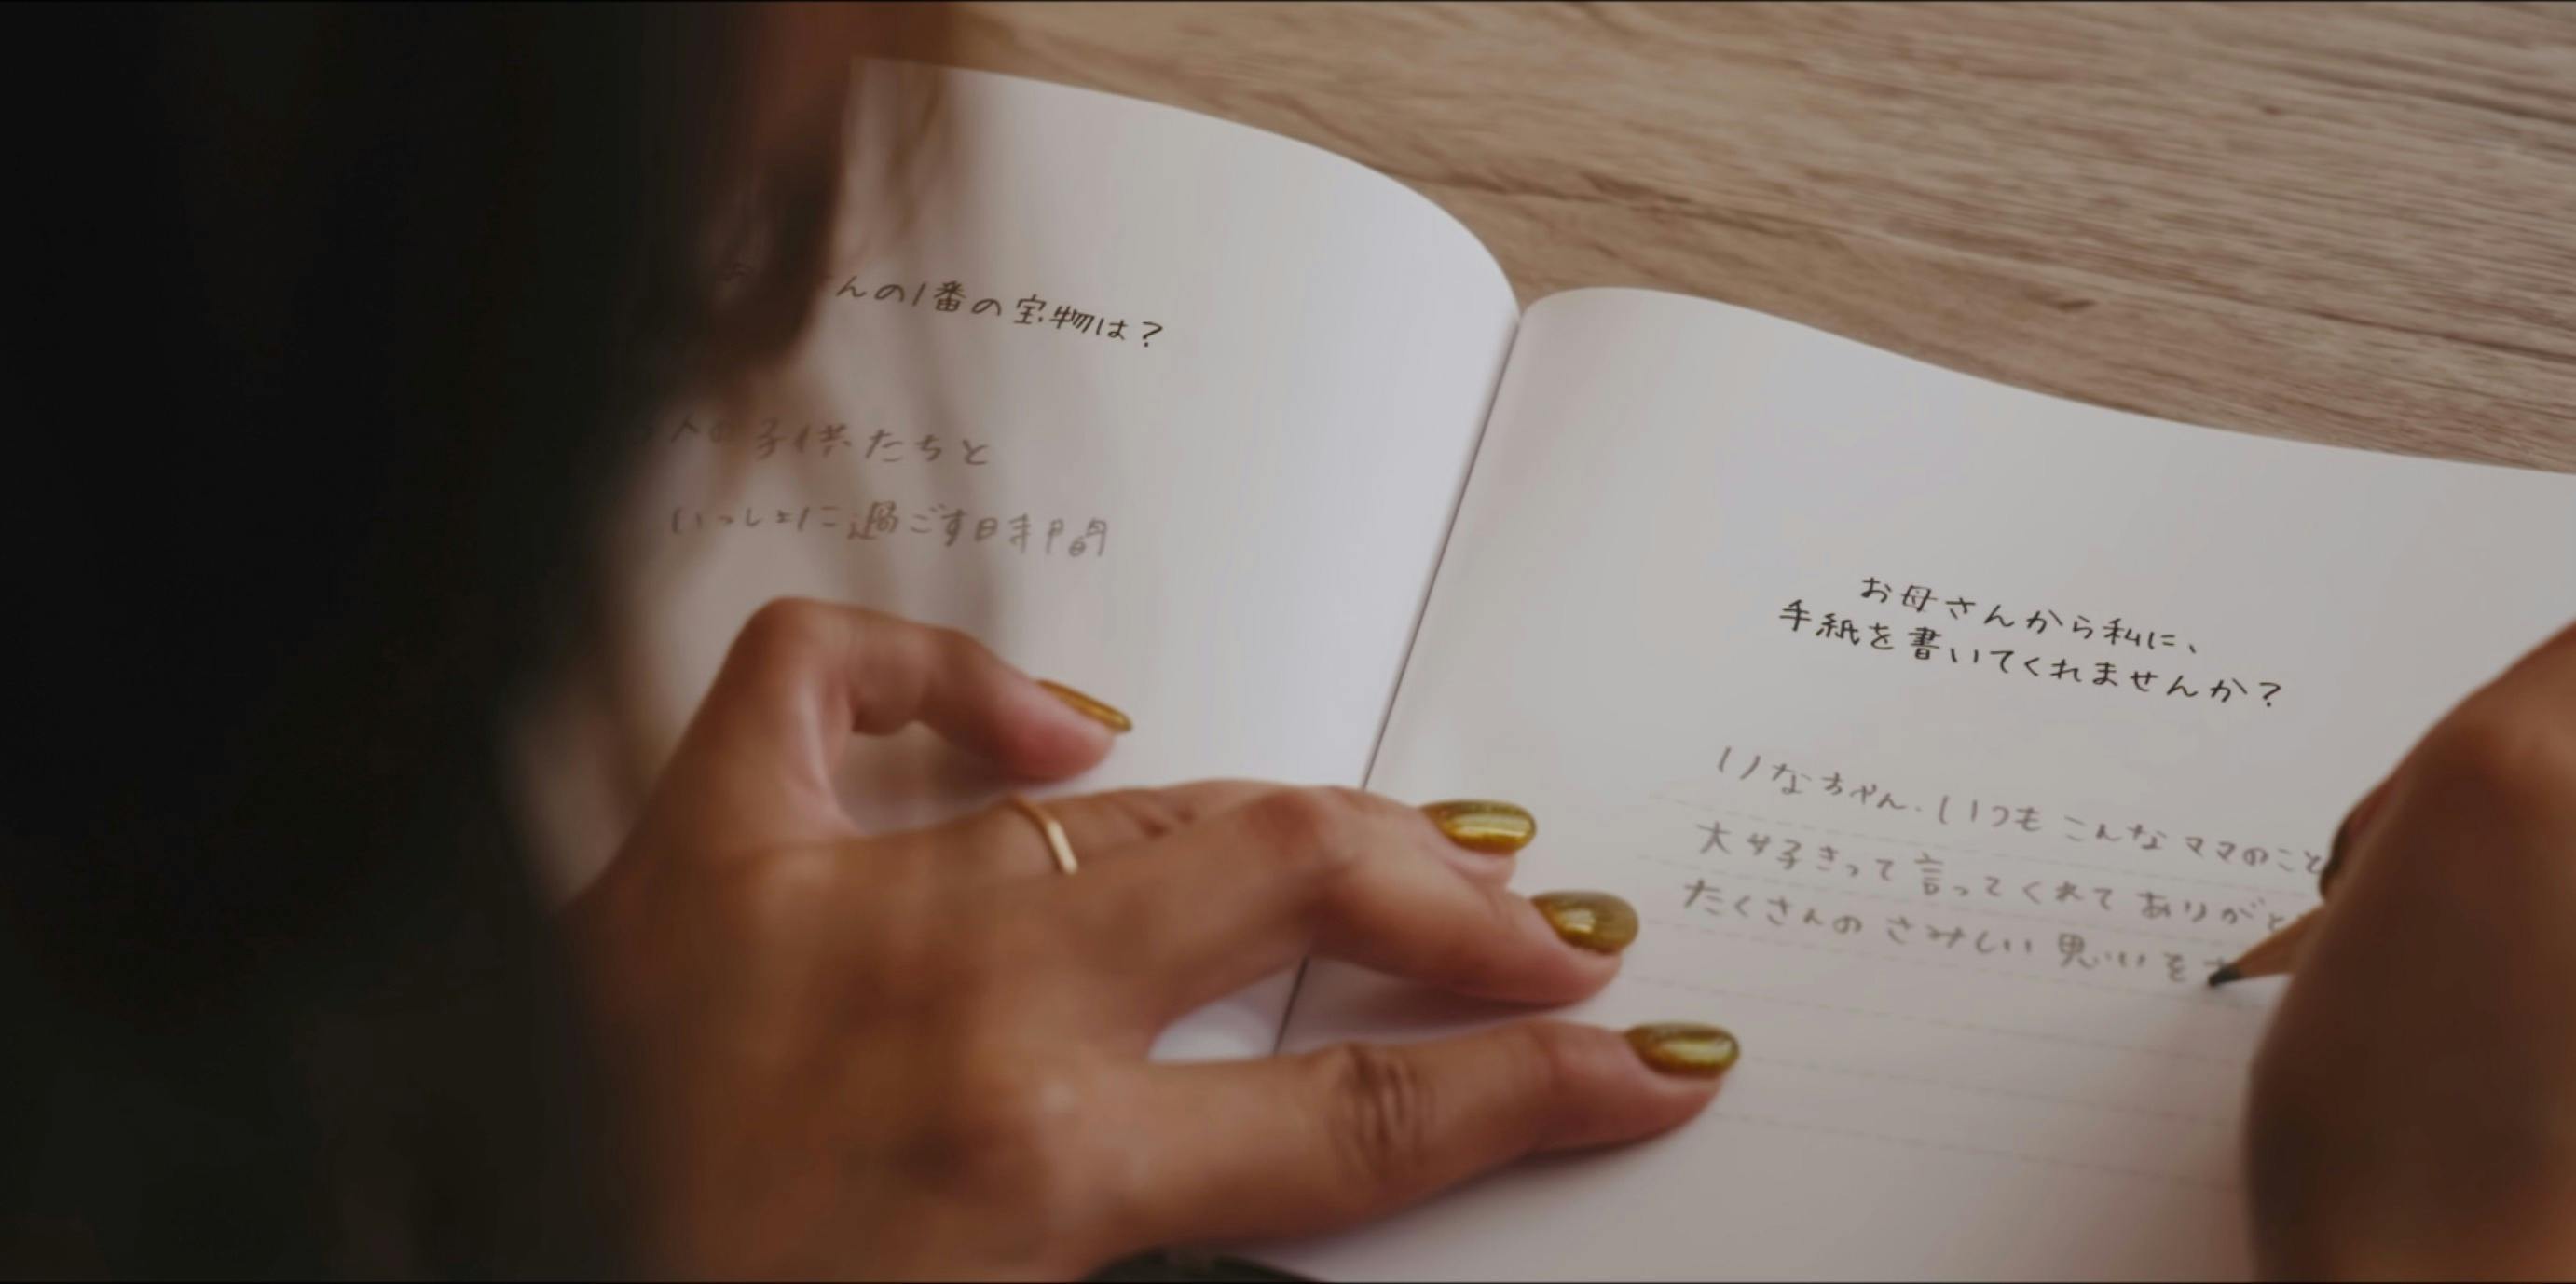 んの1番の宝物は?
人の子供たちと
いっしょに過ごす時間
お母さんから私に、
手紙を書いてくれませんか?
りなちゃん.いつもこんなママのこと
大好きって言ってくれてありがと
たくさんのさみしい思いを